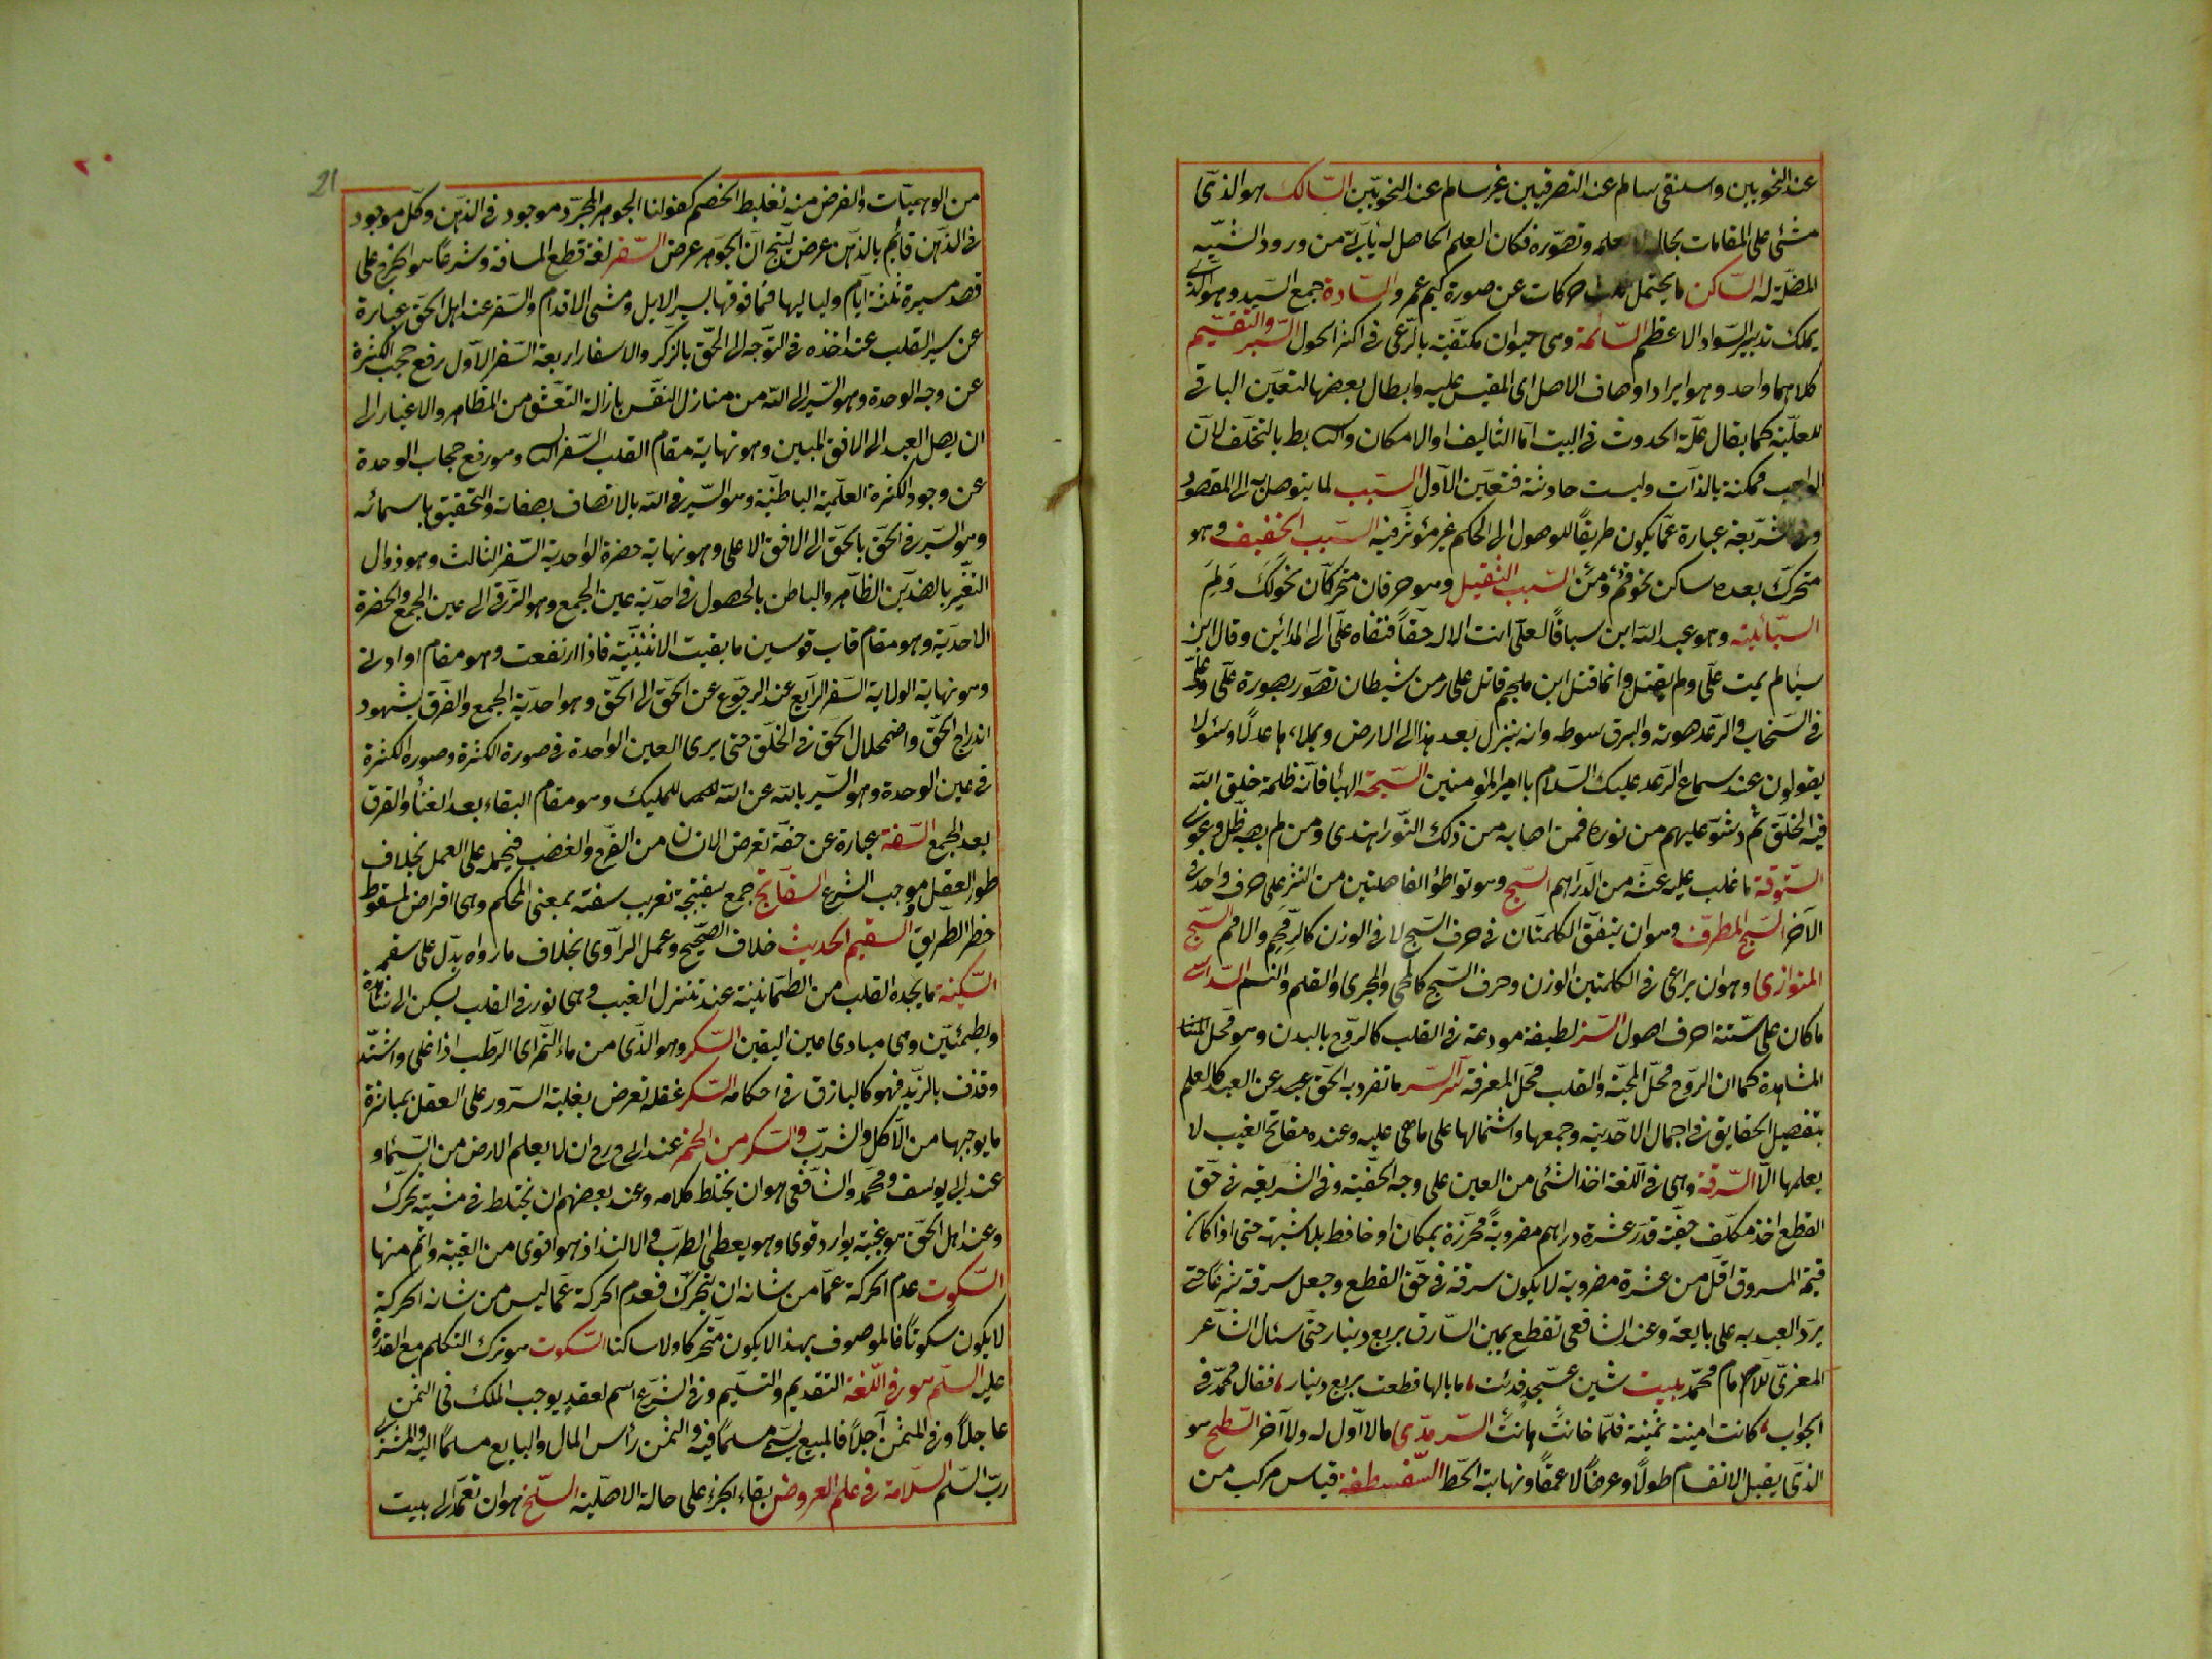 عند النحويين واسلنقى سالم عند التصرفيين غير سالم عند النحويين السالك هو الذى
مشى على المقامات بحاله لا بعلمه وتصوره فكان العلم الحاصل له يأبى من ورود الشبه
المضلة له الساكن ما يحتمل ثلث حركات عن صورة كميم عمرو السادة جمع السيد وهو الذى
يملك تدبير السواد الاعظم السائمة وهى حيوان مكتفية بالرعى فى اكثر الحول السبر والتقسيم
كلاهما واحد وهو ايراد اوصاف الاصل اى المقيس عليه وابطال بعضها لتعين الباقى
للعلية كما يقال علة الحدوث فى البيت اما التأليف او الامكان والثانى بط بالتخلف لان
الواجب ممكنة بالذات وليست حادثة فتعين الاول السبب لما يتوصل به الى المقصود
وفى الشريعة عبارة عما يكون طريقا للوصول الى الحكم غير مؤثر فيه السبب الخفيف وهو
متحرك بعده ساكن نحو قم ومن السبب الثقيل وهو حرفان متحركان نحو لك ولم
السبائية وهو عبد الله ابن سبا قال لعلى انت الاله حقا فنفاه على الى المدائن وقال ابن
سبا لم يمت على ولم يقتل وانما قتل ابن ملجم قاتل على رض من شيطان تصور بصورة على وعلى
فى السحاب والرعد صوته والبرق سوطه وانه ينزل بعد هذا الى الارض ويملاءها عدلا وهؤلا
يقولون عند سماع الرعد عليك السلام يا امير المؤمنين السبحة الهبا فانه ظلمة خلق الله
فيه الخلق ثم رش عليهم من نوره فمن اصابه من ذلك النور اهتدى ومن لم يصبه ضل وغوى
الستوقة ما غلب عليه غشه من الدراهم السجع وهو تواطؤ الفاصلتين من النثر على حرف واحد فى
الآخر السجع المطرف وهو ان يتفق الكلمتان فى حرف السجع لا فى الوزن كالرمم والامم السجع
المتوازى وهو ان يراعى فى الكلمتين الوزن وحرف السجع كالمحى والمجرى والقلم والنسم السداسى
ما كان على ستة احرف اصول السر لطيفة مودعة فى القلب كالروح بالبدن وهو محل
المشاهدة كما ان الروح محل المحبة والقلب محل المعرفة سر السر ما تفرد به الحق عبد عن العبد كالعلم
بتفصيل الحقايق فى اجمال الاحدية وجمعها واشتمالها على ما هى عليه وعنده مفاتح الغيب لا
يعلمها الا السرقة وهى فى اللغة اخذ الشئ من العين على وجه الخفية وفى الشريعة فى حق
القطع اخذ مكلف خفية قدر عشرة دراهم مضروبة محرزة بمكان او حافظ بلا شبهة حتى اذا كان
قيمة المسروق اقل من عشرة مضروبة لا يكون سرقة فى حق القطع وجعل سرقة شرعا حتى
يرد العبد به على بايعه وعند الشافعى تقطع يمين السارق بربع دينار حتى سئال الشاعر
المعرى للامام محمد ببيت شين عسجد فدئت ما بالها قطعت بربع دينار فقال محمد فى
الجواب كانت امينة ثمينة فلما خانت هانت السرمدى ما لا اول له ولا آخر السطح هو
الذى يقبل الانقسام طولا وعرضا لا عمقا ونهايته الخط السفسطة قياس مركب من
21
من الوهميات والغرض منه تغليط الخصم كقولنا الجوهر المجرد موجود فى الذهن وكل موجود
فى الذهن قائم بالذهن عرض لينتج ان الجوهر عرض السفر لغة قطع المسافة وشرعا هو الخروج على
قصد مسيرة ثلثة ايام ولياليها فما فوقها بسير الابل ومشى الاقدام والسفر عند اهل الحق عبارة
عن سير القلب عند اخذه فى التوجه الى الحق بالذكر والاسفار اربعة السفر الاول رفع حجب الكثرة
عن وجه الوحدة وهو السير الى الله من منازل النفس بازالة التعشق من المظاهر والاغيار الى
ان يصل العبد الى الافق المبين وهو نهاية مقام القلب السفر الثانى وهو رفع حجاب الوحدة
عن وجود الكثرة العلمية الباطنية وهو السير فى الله بالاتصاف بصفاته والتحقيق باسمائه
وهو السير فى الحق بالحق الى الافق الاعلى وهو نهاية حضرة الواحدية السفر الثالث وهو زوال
التغير بالضدين الظاهر والباطن بالحصول فى احدية عين الجمع وهو الترقى الى عين الجمع والحضرة
الاحدية وهو مقام قاب قوسين ما بقيت الاثنينية فاذا ارتفعت وهو مقام او ادنى
وهو نهاية الولاية السفر الرابع عند الرجوع عن الحق الى الحق وهو احدية الجمع والفرق بشهود
اندراج الحق واضمحلال الحق فى الخلق حتى يرى العين الواحدة فى صورة الكثرة وصورة الكثرة
فى عين الوحدة وهو السير بالله عن الله وهو مقام البقاء بعد الفناء والفرق
بعد الجمع السفه عبارة عن خفة تعرض الانسان من الفرح والغضب فيحمله على العمل بخلاف
طور العقل وموجب الشرع السفاتج جمع سفتجة تعريب سفته بمعنى المحكم وهى اقراض لسقوط
خطر الطريق السقيم الحديث خلاف الصحيح وعمل الراوى بخلاف ما رواه يدل على سقمه
السكينة ما يجده القلب من الطمأنينة عند تنزل الغيب وهى نور فى القلب يسكن الى شاهده
ويطمئن وهى مبادى عين اليقين السكر وهو الذى من ماء التمر اى الرطب اذا غلى واشتد
وقذف بالزبد فهو كالباذق فى احكامه السكر غفلة تعرض بغلبة السرور على العقل بمباشرة
ما يوجبها من الاكل والشرب والسكر من الخمر عند ابى ح رح ان لا يعلم الارض من السماء و
عند ابى يوسف ومحمد والشافعى هو ان يختلط كلامه وعند بعضهم ان يختلط فى مشيته تحرك
وعند اهل الحق هو غيبة بوارد قوى وهو يعطى الطرب والالتذاذ هو اقوى من الغيبة واتم منها
السكوت عدم الحركة عما من شانه ان يتحرك فعدم الحركة عما ليس من شانه الحركة
لا يكون سكونا فالموصوف بهذا لا يكون متحركا ولا ساكنا السكوت هو ترك التكلم مع القدرة
عليه السلم هو فى اللغة التقديم والتسليم وفى الشرع اسم لعقد يوجب الملك فى الثمن
عاجلا وفى المثمن آجلا فالمبيع يسمى مسلما فيه والثمن رأس المال والبايع مسلما اليه والمشترى
رب السلم السلامة فى علم العروض بقاء الجزء على حالة الاصلية السلخ هو ان تعمد الى بيت